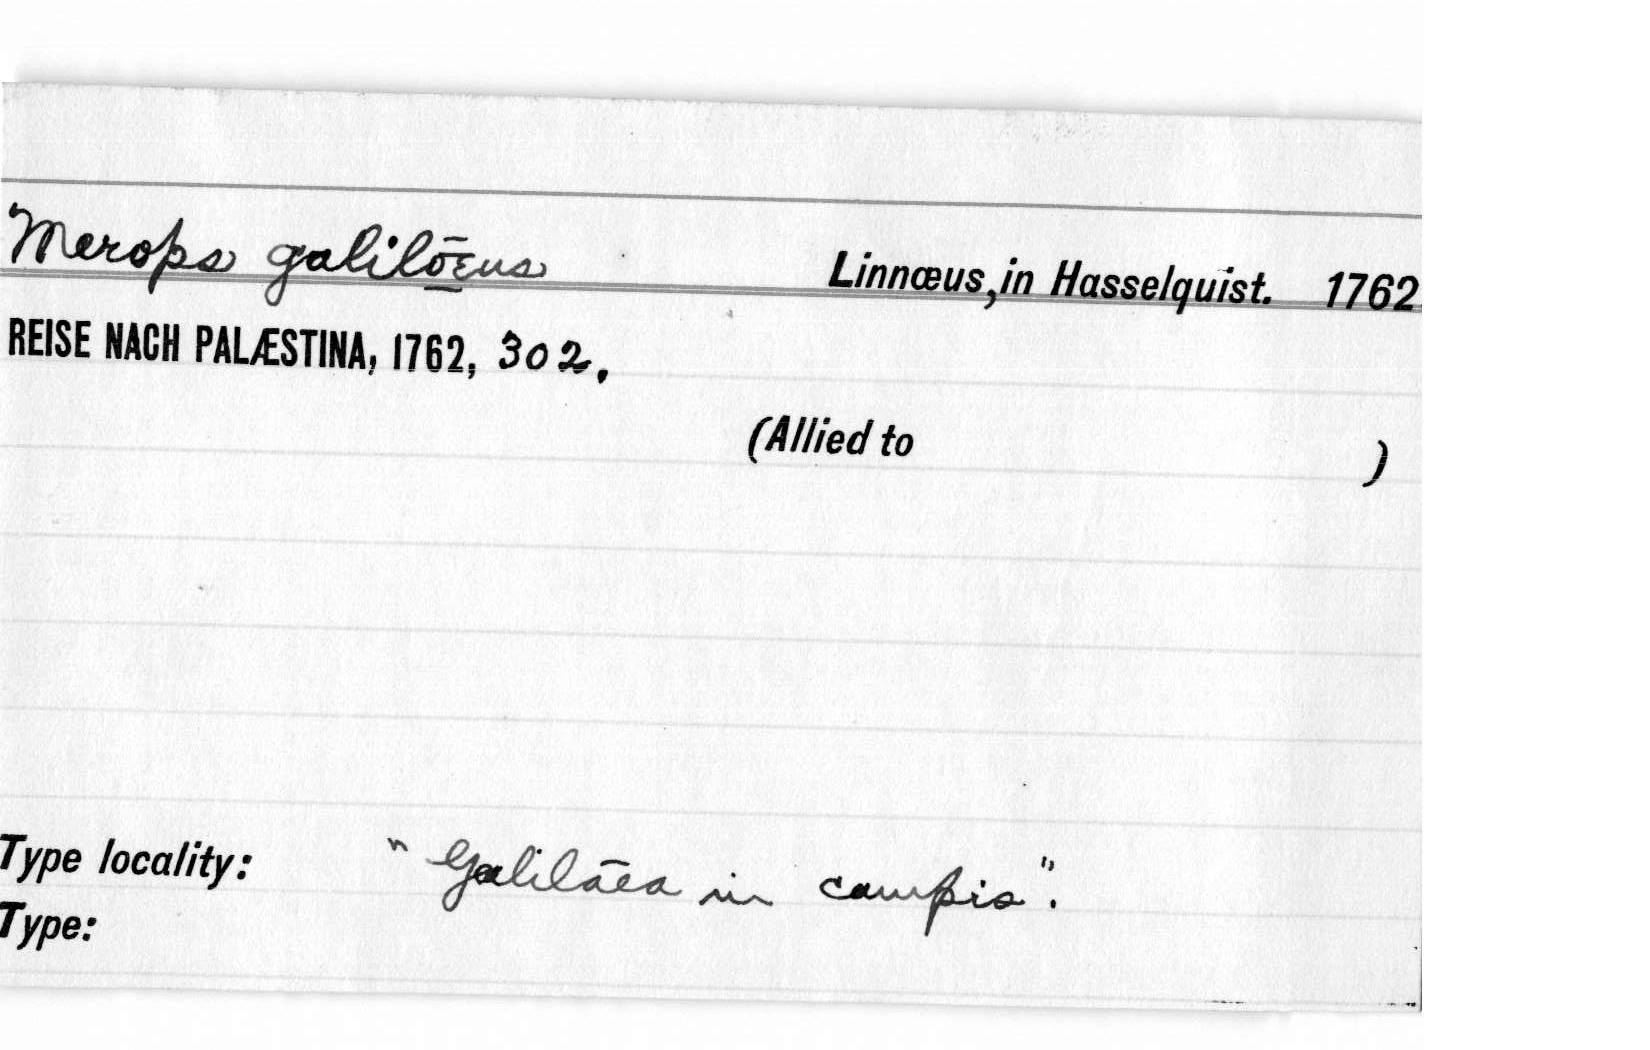 Merops galilœus Linnœus, in Hasselquist. 1762
REISE NACH PALÆSTINA, 1762, 302.
(Allied to )
Type locality: "Galilæa in campis".
Type: